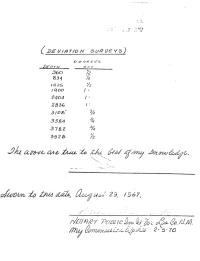 (DEVIATION SURVEYS)
DEPTH DEGREES OFF
360 ½
834 ¾
1425 ½
1900 1°
2404 1°
2836 1°
3108 ¾
3384 ¾
3782 ¾
3928 ½
The above are true to the best of my knowledge.
Sworn to this date, August 29, 1967.
NOTARY PUBLIC
My Commission Expires 2-3-70